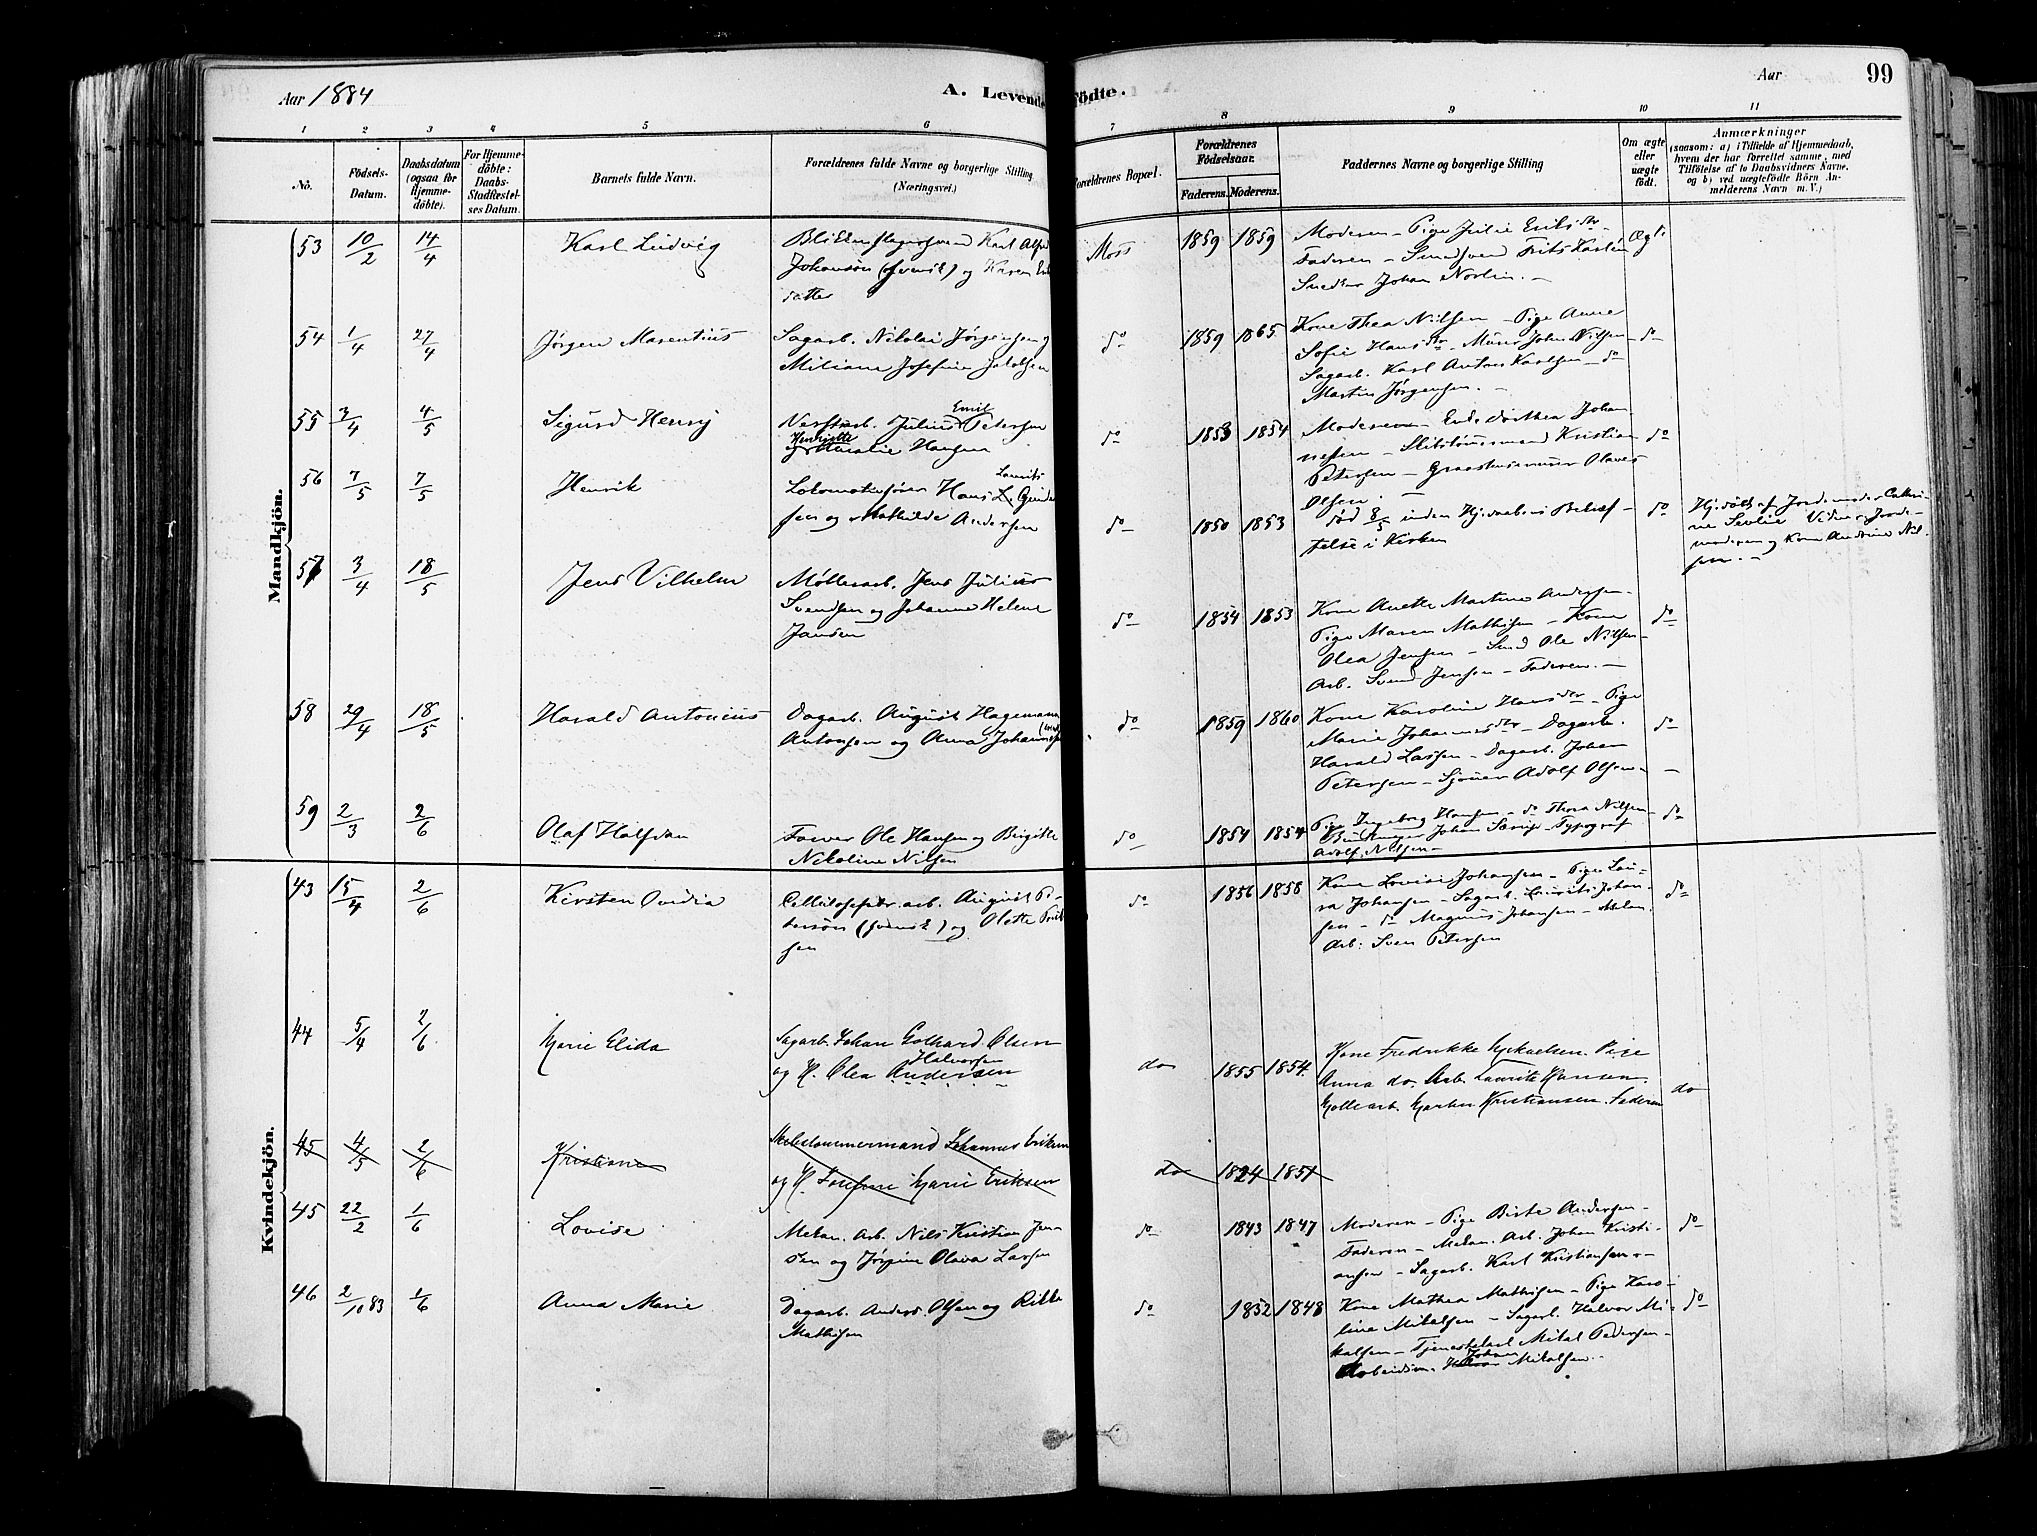 Aar 1884
A. Levende Födte.
Aar
99
1 2 3 4 5 6 7 8 9 10 11
No.
Födsels-Datum.
Daabsdatum (ogsaa for Hjemme-döbte).
For Hjemme-döbte: Daabs-Stadfæstel-ses Datum.
Barnets fulde Navn.
Forældrenes fulde Navne og borgerlige Stilling (Næringsvei.)
Forældrenes Bopæl.
Forældrenes Födselsaar.
Faderens. Moderens.
Faddernes Navne og borgerlige Stilling
Om ægte eller uægte födt.
Anmærkninger
(saasom: a) i Tilfælde af Hjemmedaab,
hvem der har forrettet samme, med
Tilföielse af to Daabsvidners Navne,
og b) ved uægtefödte Börn An-
melderens Navn m. V.)
Mandkjön.
53 10/2 14/4 Karl Ludvig
Blikkenslagersvend Karl Alfr
Johansön (svensk) og Karen
datter
Moss 1859 1859
Moderen – Pige Julie Eriksdtr
Faderen –
Snedker Johan Norlin. –
Ægt.
54 1/4 27/4 Jörgen Marentius
Sagarb. Nikolai Jørgensen og
Miliane Josefine Jakobsen
do 1859 1865
Kone Thea Nilsen – Pige Anne
Sofie Hansdtr – Murer Johan Nilsen –
Sagarb. Karl Anton Karlsen – do
Martin Jørgensen. –
do
55 3/4 4/5 Sigurd Henry
Verftsarb. Julius Emil Petersen
og Henriette Natalie Hansen
do 1853 1854
Moderen – Enke Dorthea Johan
nessen – Skibstømmermand Kristian
Petersen – Olaves
Olsen. –
do
56 7/5 7/5 Henrik
Lokomotivfører Hans Laurits Gunder
sen og Mathilde Andersen
do 1850 1853
død 8/5 inden Hj.daabens Bekræf-
telse i Kirken
do
Hj.døbt af Jordemoder Cathri-
ne Vidner Jorde-
moderen og Kone Andrine Nil-
sen. –
57 3/4 18/5 Jens Vilhelm
Møllerarb. Jens Julius
Svendsen og Johanne Helene
Jansen
do 1854 1853
Kone Anette Martine Andersen.
Pige Maren Mathisen – Kone
Olea Jensen – Smed Ole Nilsen –
Arb. Svend Jensen – Faderen. –
do
58 29/4 18/5 Harald Antonius
Dagarb. August Hagemann
Antonsen og Anna Johannes
do 1859 1860
Kone Karoline Hansdtr – Pige
Marie Johannesdtr – Dagarb.
Harald Larsen – Dagarb. Johan
Petersen – Sjømd Adolf Olsen –
do
59 2/3 2/6 Olaf Halfdan
Ole Hansen og Birgitte
Nikoline Nilsen
do 1854 1854
Pige Ingeborg Hansen – do Thora Nilsen
Johan – Typograf
Adolf Nilsen –
do
Kvindekjön.
43 15/4 2/6 Kirsten Ovidia
Cellulosefabr. arb. August Pe-
tersön (svensk) og Olette
sen
do 1856 1858
Kone Lovise Johansen – Pige Lau-
ra Johansen – Sagarb. Laurits Johan-
sen – do Magnus Johansen – Mekan.
Arb. Sven Petersen
do
44 5/4 2/6 Marie Elida
Sagarb. Johan Gothard Olsen
og H. Olea Andersen Halvorsen
do 1855 1854
Kone Fredrikke Mikaelsen. Pige
Anna do. Arb. Laurits Hansen.
Møllearb. Martin Kristiansen. Faderen
do
45 4/5 2/6 Kristiane
Skibstømmermand Johannes Eriksen
og H. Josefine Marie Eriksen
do 1824 1851
45 22/2 1/6 Lovise
Mekan. Arb. Nils Kristian Jen-
sen og Jørgine Olava Larsen
do 1843 1847
Moderen – Pige Birte Andersen –
Faderen – Mekan. Arb. Johan Kristi-
ansen – Sagarb. Karl Kristiansen. –
do
46 2/10 83 1/6 Anna Marie
Dagarb. Anders Olsen og Rikke
Mathisen
do 1852 1848
Kone Mathea Mathisen – Pige Karo-
line Mikalsen – Sagarb. Halvor Mi-
kalsen – Tjenestekarl Mikal Pedersen –
Arbeidsm. Johan Mikalsen. –
do